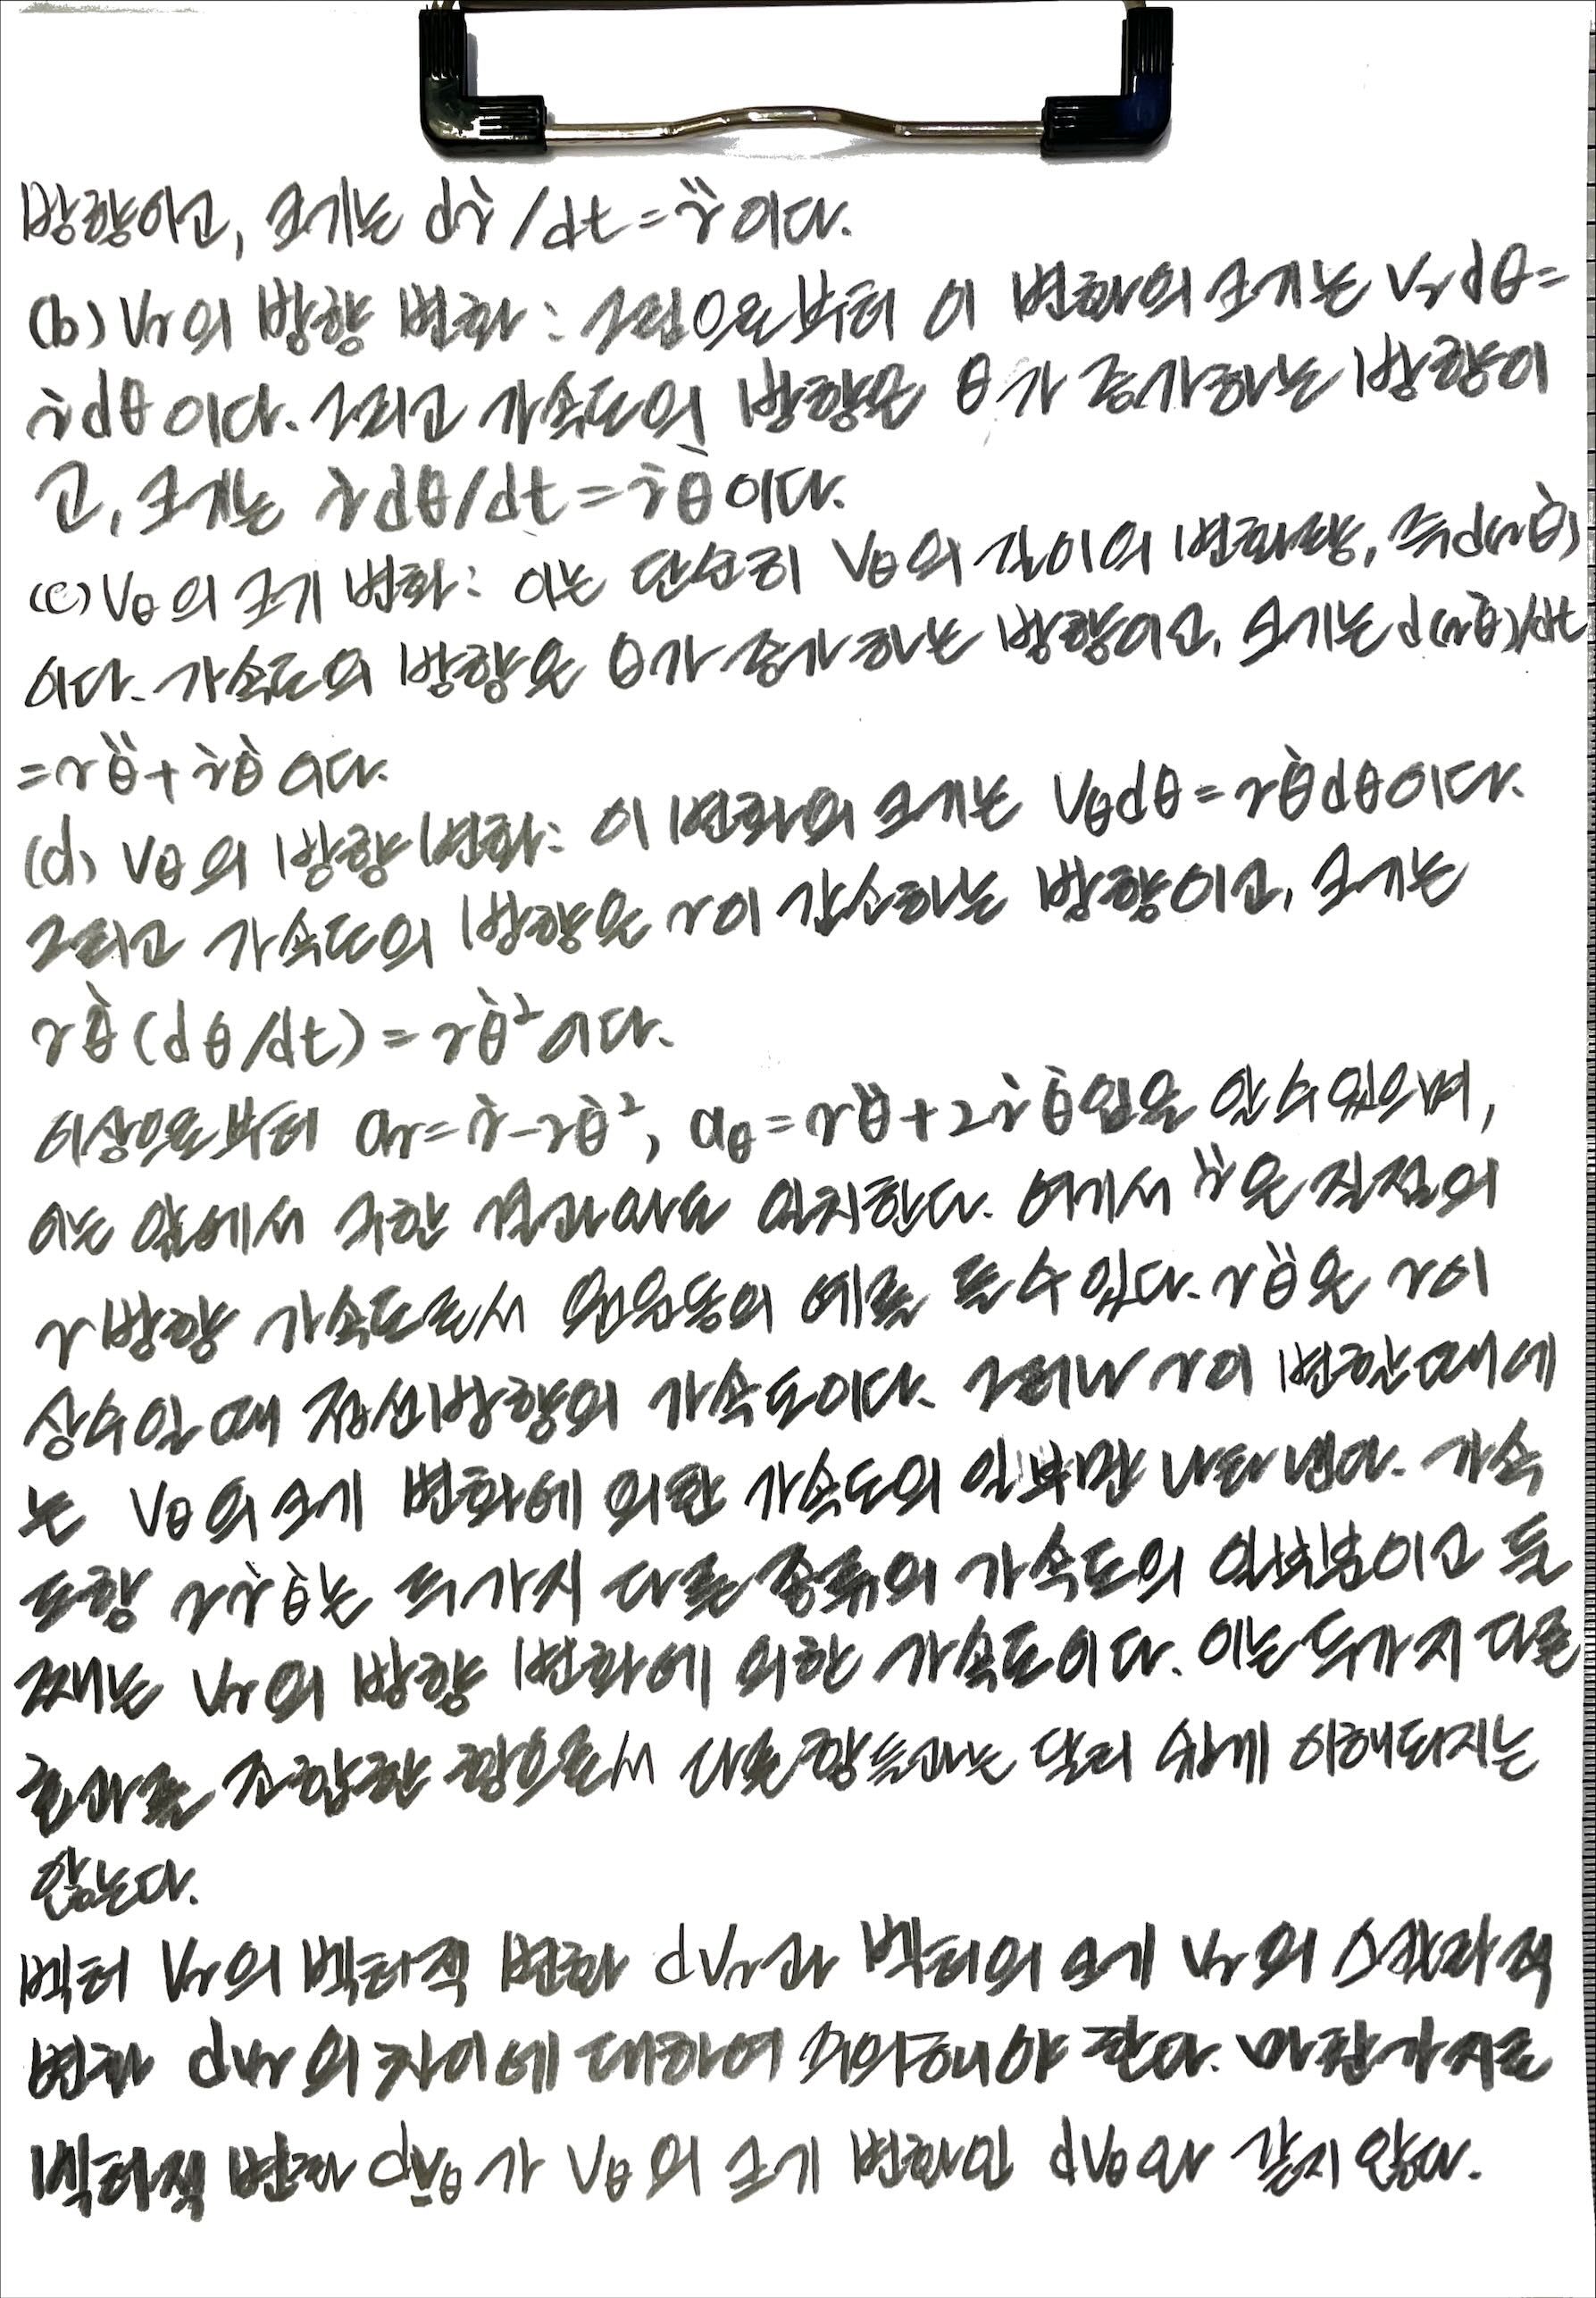 방향이고, 크기는 dṙ/dt = r̈ 이다.
(b) Vr의 방향 변화 : 그림으로부터 이 변화의 크기는 Vr dθ =
ṙdθ이다. 그리고 가속도의 방향은 θ가 증가하는 방향이
고, 크기는 ṙdθ/dt = ṙθ̇ 이다.
(c) Vθ의 크기 변화 : 이는 단순히 Vθ의 길이의 변화량, 즉 d(rθ̇)
이다. 가속도의 방향은 θ가 증가하는 방향이고, 크기는 d(rθ̇)/dt
= rθ̈ + ṙθ̇ 이다.
(d) Vθ의 방향 변화 : 이 변화의 크기는 Vθdθ = rθ̇dθ이다.
그리고 가속도의 방향은 r이 감소하는 방향이고, 크기는
rθ̇(dθ/dt) = rθ̇² 이다.
이상으로부터 ar = r̈ - rθ̇², aθ = rθ̈ + 2ṙθ̇임을 알 수 있으며,
이는 앞에서 구한 결과와도 일치한다. 여기서 r̈은 질점의
r방향 가속도로서 원운동의 예를 들 수 있다. rθ̈은 r이
상수일 때 접선방향의 가속도이다. 그러나 r이 변할 때에
는 Vθ의 크기 변화에 의한 가속도의 일부만 나타낸다. 가속
도항 2ṙθ̇는 두가지 다른 종류의 가속도의 일부분이고 둘
째는 Vr의 방향 변화에 의한 가속도이다. 이는 두가지 다른
효과를 조합한 항으로서 다른 항들과는 달리 쉽게 이해되지는
않는다.
벡터 Vr의 벡터적 변화 dVr과 벡터의 크기 Vr의 스칼라적
변화 dvr의 차이에 대하여 주의해야 한다. 마찬가지로
벡터적 변화 dV̲θ가 Vθ의 크기 변화인 dVθ와 같지 않다.